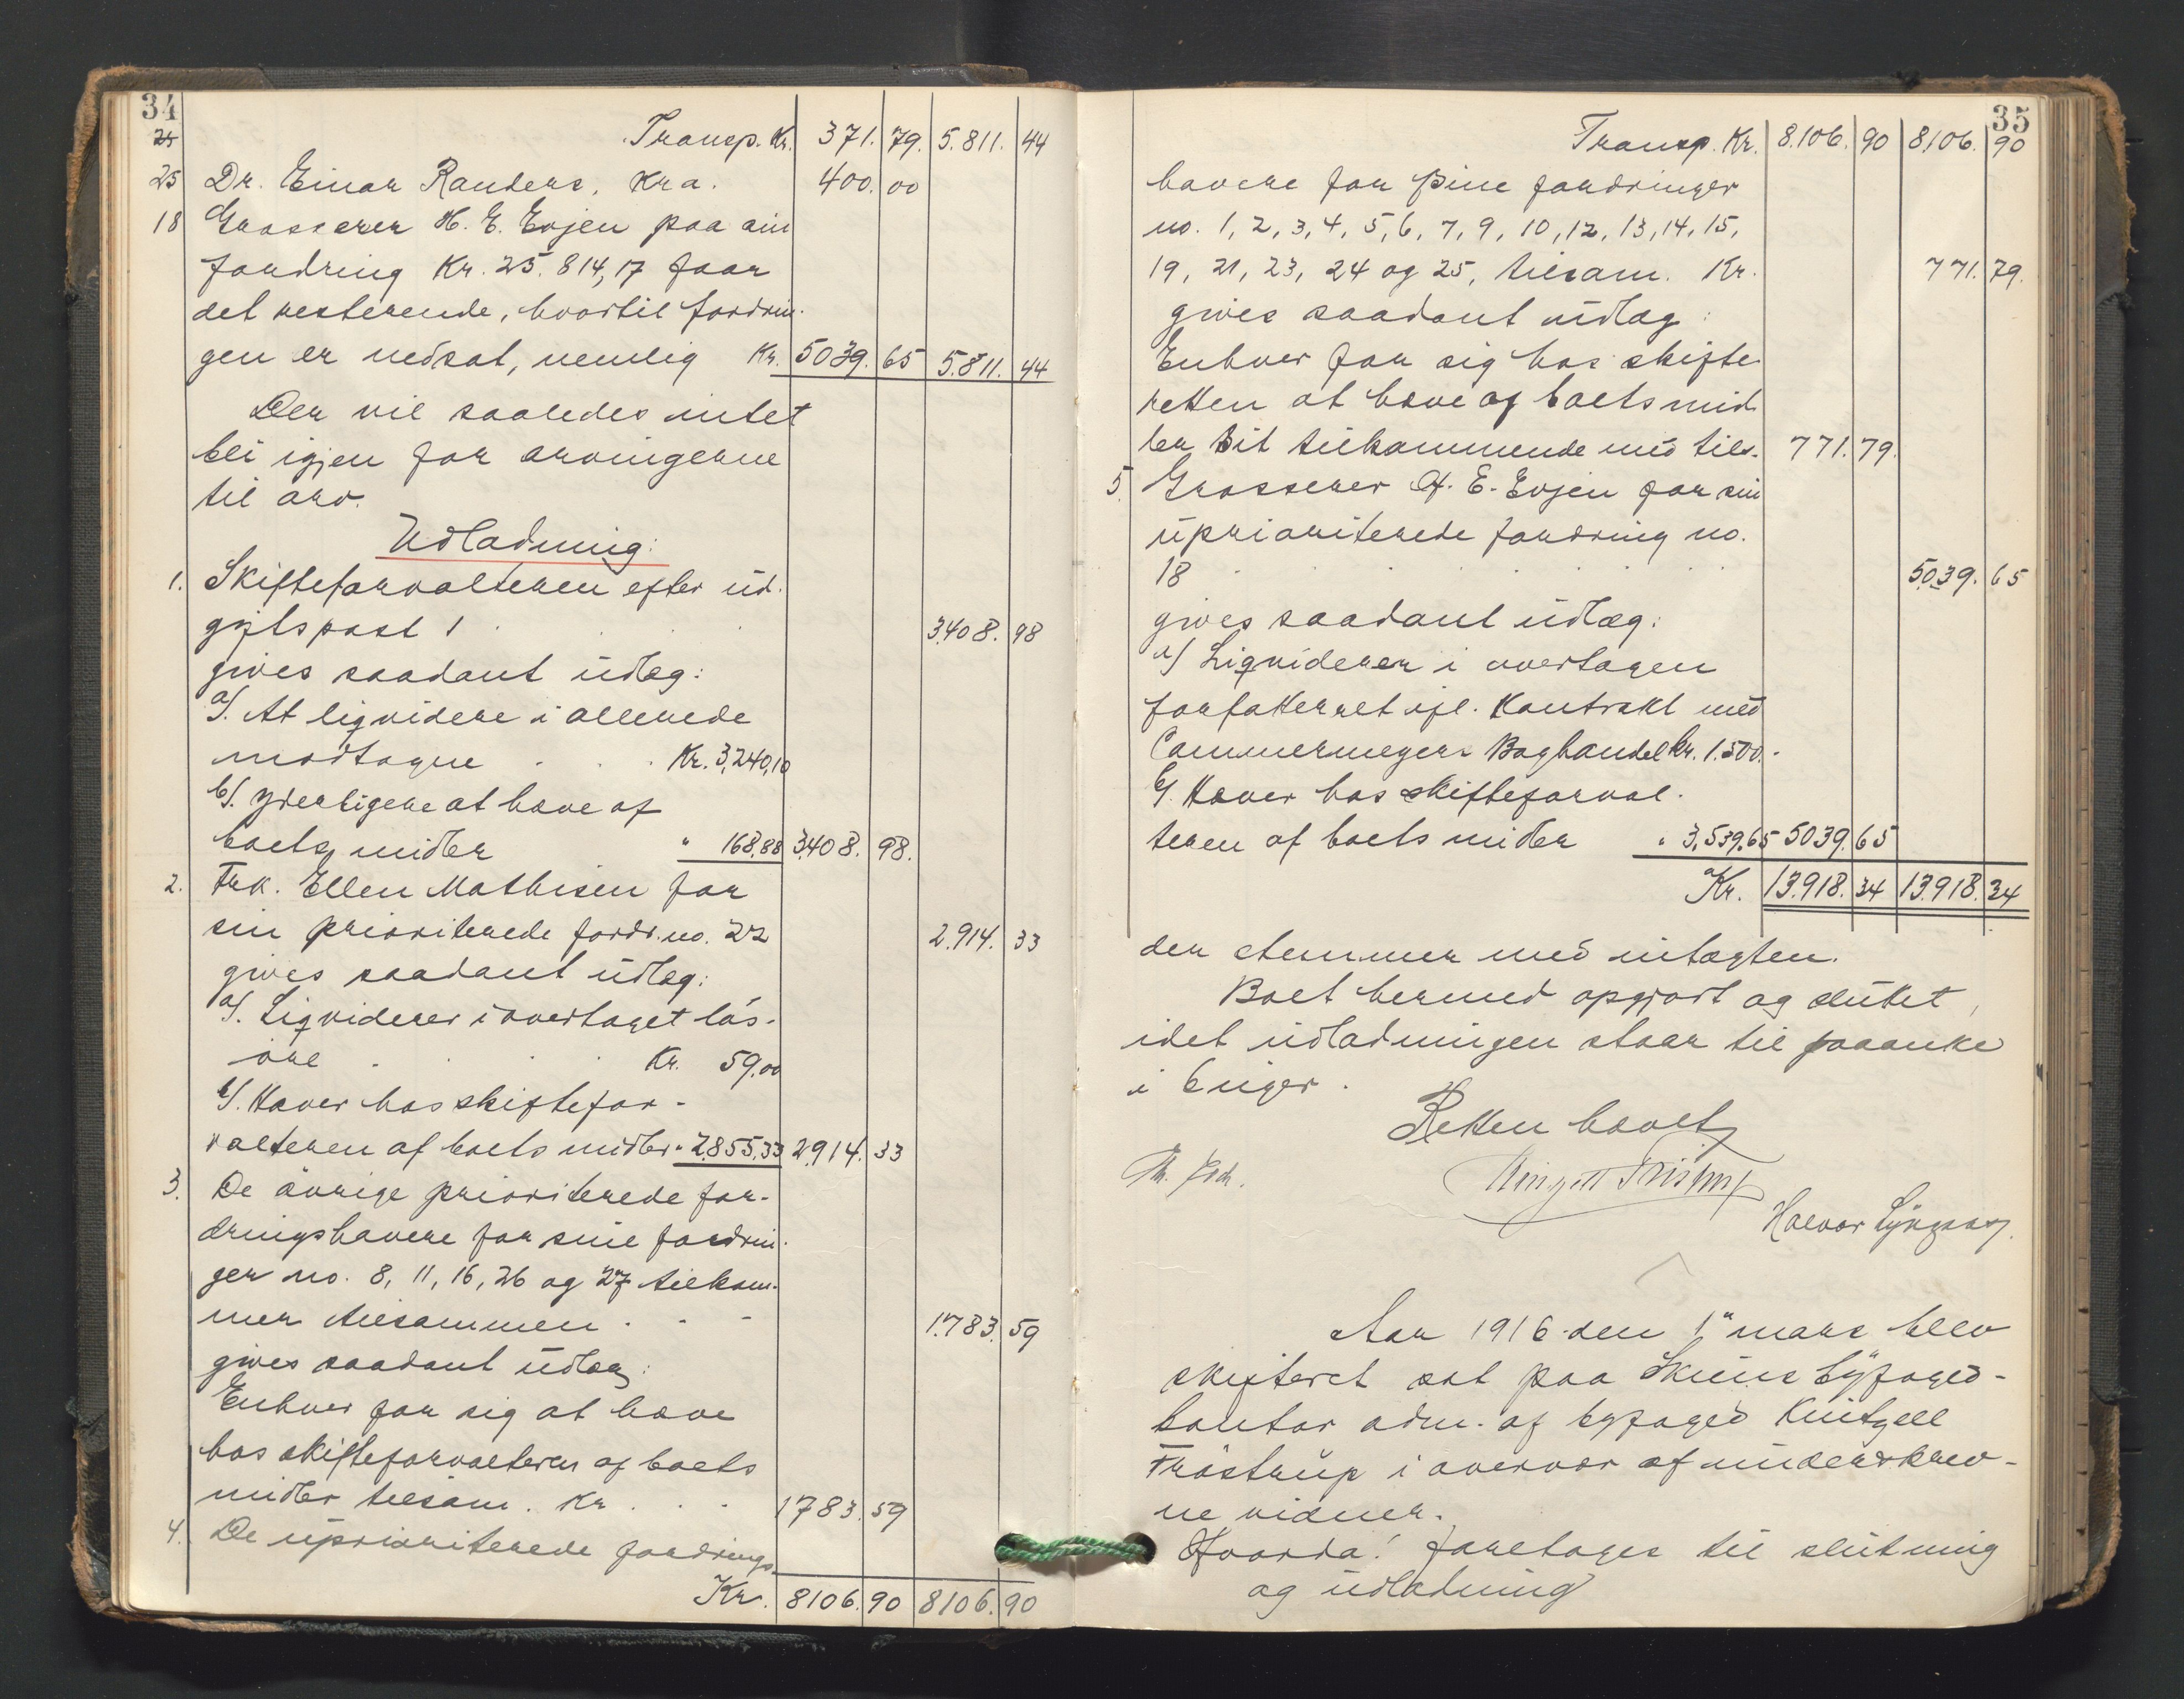 34
24 Transp. Kr. 371. 79. 5.811. 44
25 Dr. Einar Randers, Kra. 400. 00
18 Grosserer H. E. Evjen paa sin
fordring Kr. 25.814,17 faar
det resterende, hvortil fordrin-
gen er nedsat, nemlig Kr. 5039. 65 5.811. 44
Der vil saaledes intet
bli igjen for arvingerne
til arv.
Udlodning:
1. Skifteforvalteren efter ud-
giftspost 1 . . . 3408. 98
gives saadant udlæg:
a/. At liqvidere i allerede
mottagne . . . Kr. 3,240,10
b/. yderligere at hæve af
boets midler " 168,88 3408. 98.
2. Frk. Ellen Mathisen for
sin prioriterede fordr. no. 22 2.914. 33
gives saadant udlæg:
a/. Liqviderer i overtaget løs-
øre . . . Kr. 59,00
b/. Hæver hos skiftefor-
valteren af boets midler " 2855,33 2914. 33
3. De øvrige prioriterede for-
dringshavere for sine fordrin-
ger no. 8, 11, 16, 26 og 27 tilkom-
mer tilsammen . - - 1.783. 59
gives saadant udlæg:
Enhver for sig at hæve
hos skifteforvalteren af boets
midler tilsam. Kr . . . 1783. 59
4. De uprioriterede fordrings-
Kr. 8106. 90 8106. 90
35
Transp. Kr. 8.106. 90 8106. 90
havere for sine fordringer
no. 1, 2, 3, 4, 5, 6, 7, 9, 10, 12, 13, 14, 15,
19, 21, 23, 24 og 25, tilsam. Kr. 771. 79.
gives saadant udlæg:
Enhver for sig hos skifte
retten at hæve af boets mid
ler sit tilkommende med tils. 771. 79.
5. Grosserer H. E. Evjen for sin
uprioriterede fordring no.
18 . . . . . . 5039. 65
gives saadant udlæg:
a/ Liqviderer i overtagen
forfatterret ifl. Kontrakt med
Cammermeyers Boghandel Kr. 1.500.-
b/. Hæver hos skifteforval-
teren af boets midler " 3,539.65 5039. 65
Kr. 13.918. 34 13.918. 34
der stemmer med indtægten.
Boet hermed opgjort og sluttet,
idet udlodningen staar til paaanke
i 6 uger.
Retten hævet
Halvor
Aar 1916 den 1ste mars blev
skifteret sat paa Skiens byfoged-
kontor adm. af byfoged Knitzell
Frøstrup i overvær af underskrev-
ne vidner.
Hvorda: foretoges til slutning
og udlodning